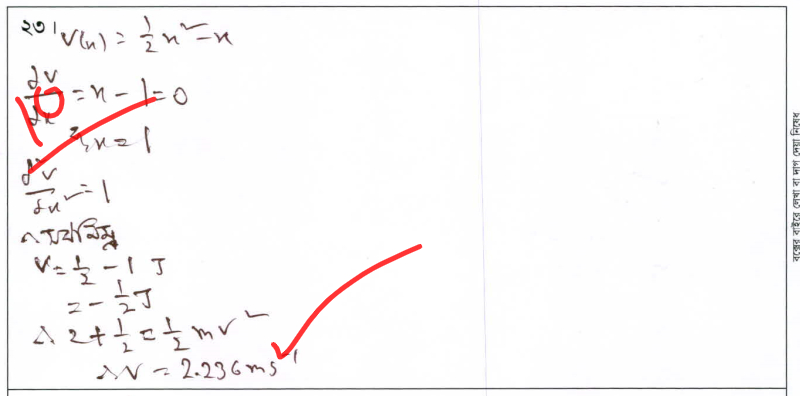 ২৩। V(x) = ½x² - x
dV/dx = x - 1 = 0
10
∴ x = 1
d²V/dx² = 1
∴ সর্বনিম্ন
V = ½ - 1 J
= - ½ J
∴ 2 + ½ = ½ mv²
∴ v = 2.236 ms⁻¹
বক্সের বাইরে লেখা বা দাগ দেয়া নিষেধ